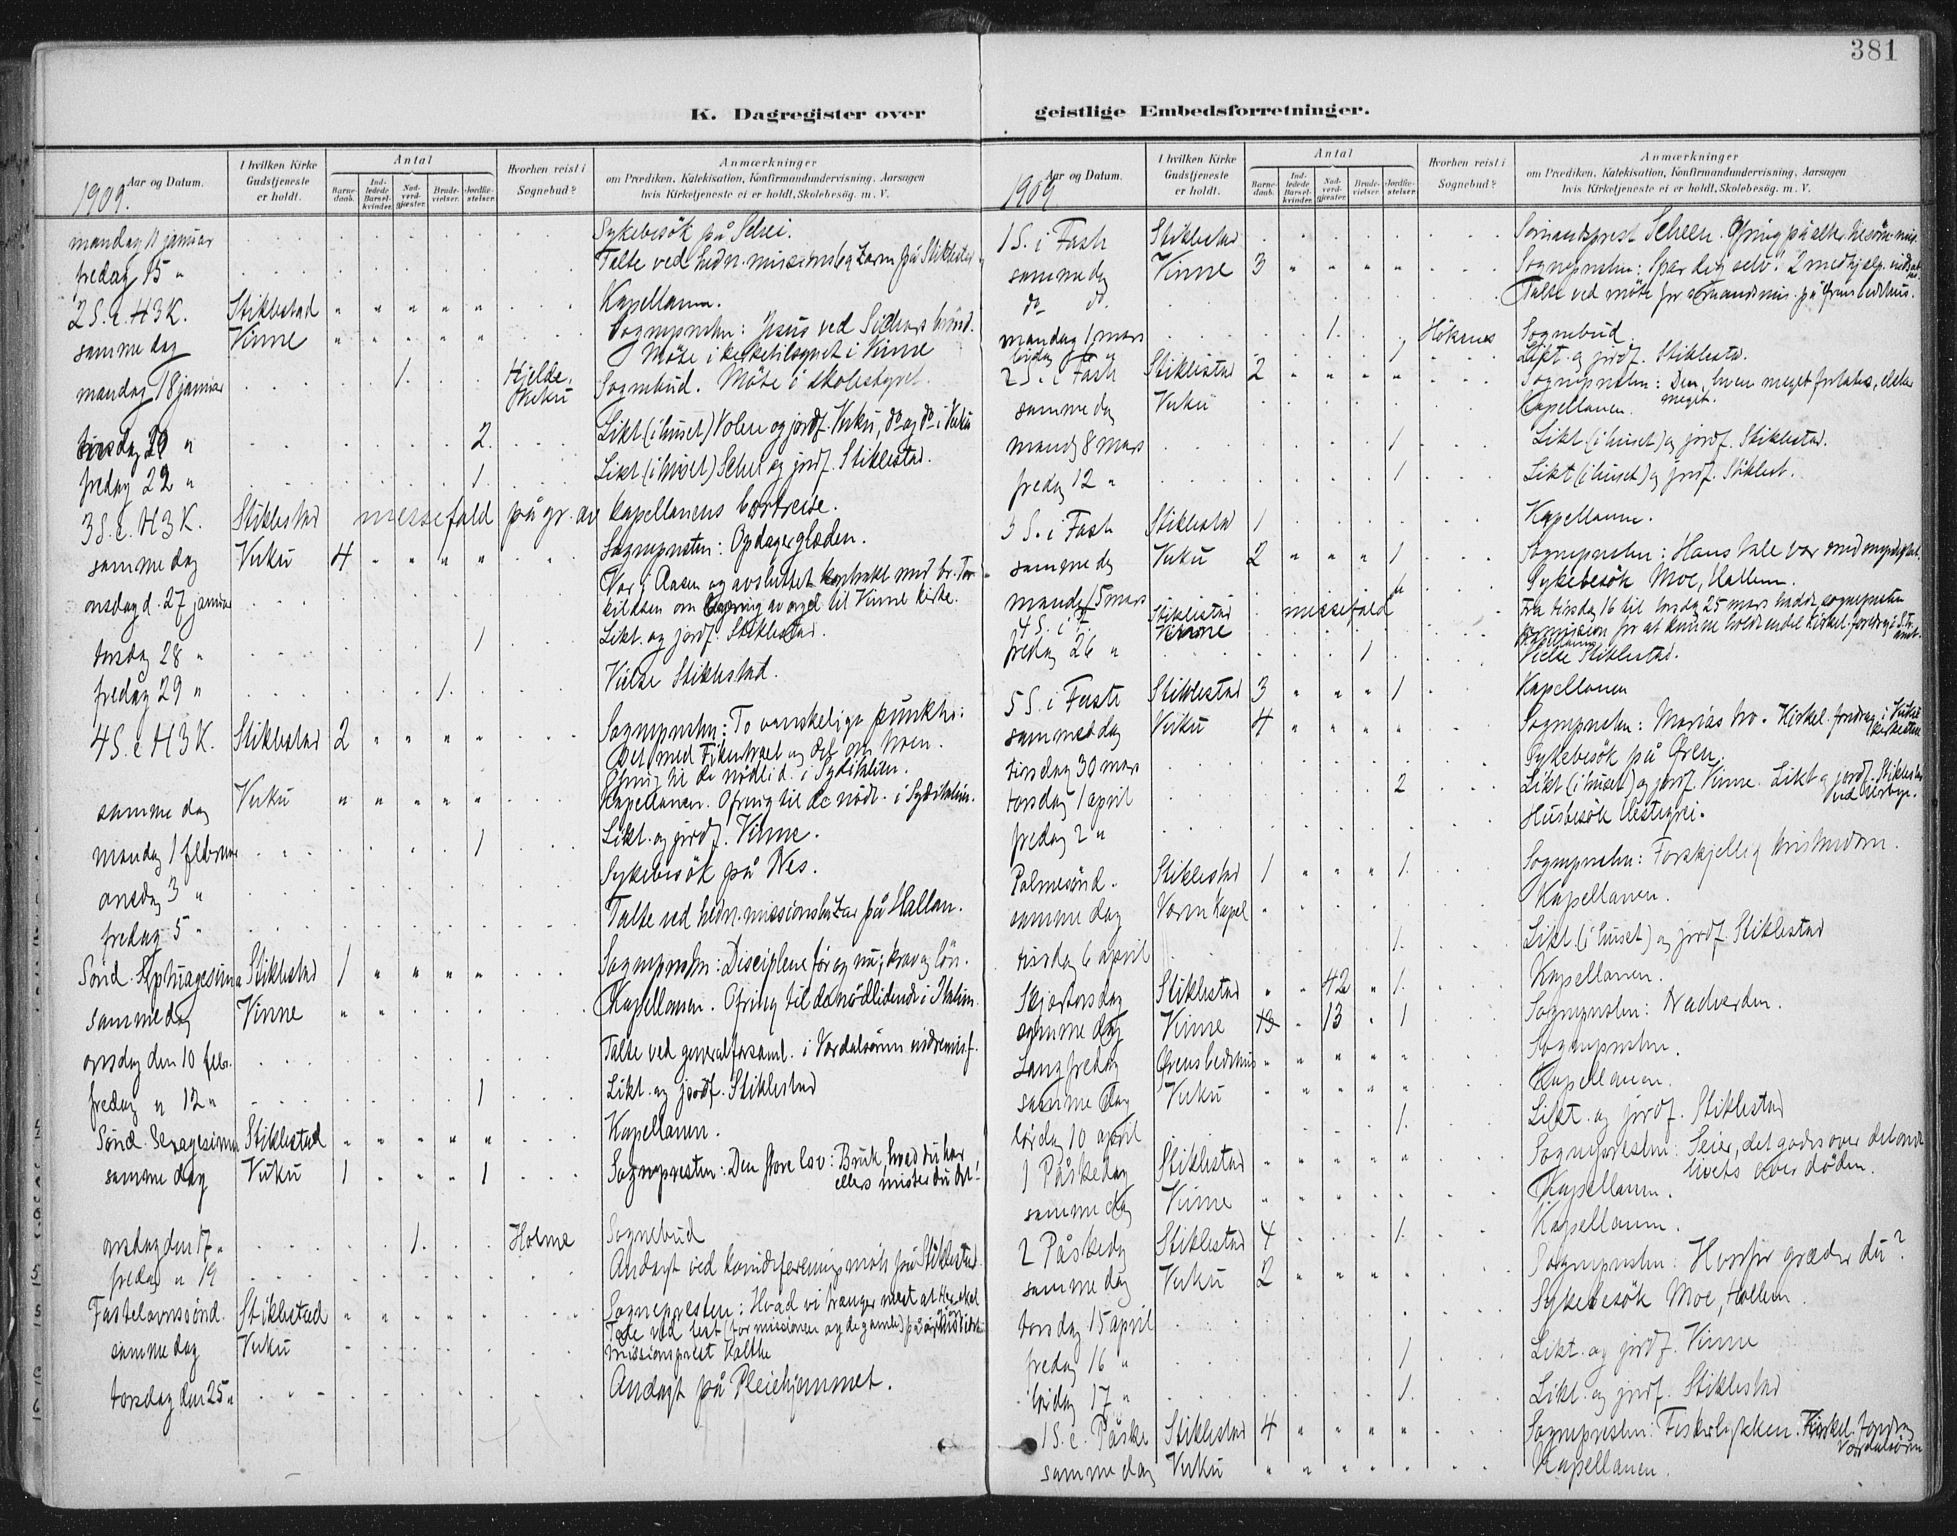 381
K. Dagregister over geistlige Embedsforretninger.
Aar og Datum. I hvilken Kirke Gudstjeneste er holdt. Antal Barnedaab. Indledede Barselkvinder. Nadverdgjæster. Brudevielser. Jordfæstelser. Hvorhen reist i Sognebud? Anmærkninger om Prædiken, Katekisation, Konfirmandundervisning, Aarsagen hvis Kirketjeneste ei er holdt, Skolebesøg, m. V.
1909.
mandag 11 januar Sykebesök på
fredag 15 " Talte ved hedn. på Stiklestad
2 S. e. H3K. Stiklestad " " " " " Kapellanen.
samme dag Vinne " " " " " Sognepresten: Jesus ved
Möte i kirketilsynet i Vinne
mandag 18 januar 1. Hjelde, Vuku Sognebud. Möte i skolestyret.
tirsdag 2. Likt. (i huset) Volen og jordf. Vuku, do og do i Vuku
fredag 22 " 1. Likt (i huset) og jordf. Stiklestad.
3 S. e. H3K. Stiklestad messefald på gr. av kapellanens bortreise.
samme dag Vuku 4 " " " " Sognepresten:
onsdag d. 27 januar Var i Aasen og avsluttet kontrakt med br. Tor-
kildsen om av orgel til Vinne kirke.
torsdag 28 " 1 Likt. og jordf. Stiklestad.
fredag 29 " 1. Vielse Stiklestad.
4 S. e H3K. Stiklestad 2 " " " " Sognepresten: To vanskelige punkter:
Det med Fikentræet og det om troen.
Ofring til de nödlid. i Syditalien.
samme dag Vuku " " " " " Kapellanen. Ofring til de nödl. i Syditalien.
mandag 1 februar 1 Likt. og jordf. Vinne.
onsdag 3 " Sykebesök på Nes.
fredag 5 " Talte ved hedn. på Hallan.
Sönd. Septuagesima Stiklestad 1 " " " " Sognepresten: Disciplene før og nu; krav og lön.
samme dag Vinne " " Kapellanen. Ofring til de nödlidende i Italien.
onsdag den 10 febr. Talte ved generalforsaml. i Værdalsörens indremisf.
fredag " 12 " 1 Likt. og jordf. Stiklestad
Sönd. Sexagesima Stiklestad " " " " " Kapellanen.
samme dag Vuku 1 " " " 1 Sognepresten: Den store lov: Bruk, hvad du har
ellers mister du det!
onsdag den 17 " 1. Holme Sognebud
fredag " 19 Andagt ved på Stiklestad.
Fastelavnssönd. Stiklestad " " " " " Sognepresten: Hvad vi trænger mest at
samme dag Vuku missionsprest
torsdag den 25 " Andagt på Pleiehjemmet.
Aar og Datum. I hvilken Kirke Gudstjeneste er holdt. Antal Barnedaab. Indledede Barselkvinder. Nadverdgjæster. Brudevielser. Jordfæstelser. Hvorhen reist i Sognebud? Anmærkninger om Prædiken, Katekisation, Konfirmandundervisning, Aarsagen hvis Kirketjeneste ei er holdt, Skolebesøg. m. V.
1909
1 S. i Faste Stiklestad Sömandsprest Scheen. Ofring på alter.
samme dag Vinne 3 " " " " Sognepresten: Spar dig selv! 2 medhjelp.
do do. Talte ved möte for sömandsmis. på Örens bedehus.
mandag 1 mars 1. Höknes Sognebud
1 Likt. og jordf. Stiklestad.
2 S. i Faste Stiklestad 2 " " " " Sognepresten: Den, hvem meget forlates, elsker
meget.
samme dag Vuku Kapellanen.
mandag 8 mars 1 Likt. (i huset) og jordf. Stiklestad.
fredag 12 " 1 Likt (i huset) og jordf. Stiklest.
3 S. i Faste Stiklestad 1 Kapellanen.
samme dag Vuku 2 " " " 1 Sognepresten: Hans tale var med myndighet.
mandag 15 mars Sykebesök Moe, Hallem.
4 S. i F. Stiklestad messefald Fra tirsdag 16 til torsdag 25 mars hadde sognepresten
Vinne permission for at kunne holde endel kirkel. foredrag i
fredag 26 " 1 Vielse Stiklestad.
5 S. i Faste Stiklestad 3 " " " 1 Kapellanen
samme dag Vuku 4 " " " " Sognepresten: Marias tro. Kirkel. foredrag i Vuku
tirsdag 30 mars Sykebesök på Ören.
torsdag 1 april 2 Likt (i huset) og jordf. Vinne. Likt og jordf. Stiklestad
fredag 2 " Husbesök
Palmesönd. Stiklestad 1 " " " 1. Sognepresten: Forskjellig kristendom.
samme dag Værn Kapel Kapellanen.
tirsdag 6 april 1. Likt (i huset) og jordf. Stiklestad
Skjærtorsdag Stiklestad " " 42 " 1. Kapellanen.
samme dag Vinne 13 " 13 " 1 Sognepresten: Nadverden.
Langfredag Ørens bedehus " " " " " Sognepresten.
samme dag Vuku " " " " Kapellanen.
lördag 10 april 1. Likt. og jordf. Stiklestad
1 Påskedag Stiklestad " " " " " Sognepresten: Seier, det godes over det onde
livets over döden.
samme dag Vinne Kapellanen.
2 Påskedag Stiklestad 4 1. Kapellanen.
samme dag Vuku 2 " " " " Sognepresten: Hvorfor græder du?
torsdag 15 april Sykebesök Moe, Hallem.
fredag 16 " 1 Likt. og jordf. Vinne
lördag 17 " 1. Likt. og jordf. Stiklestad
1 S. e. Påske Stiklestad 4 " " " " Sognepresten: Fiskerlykken. Kirkel. foredrag
Værdalsören
samme dag Vuku " " " " " Kapellanen.